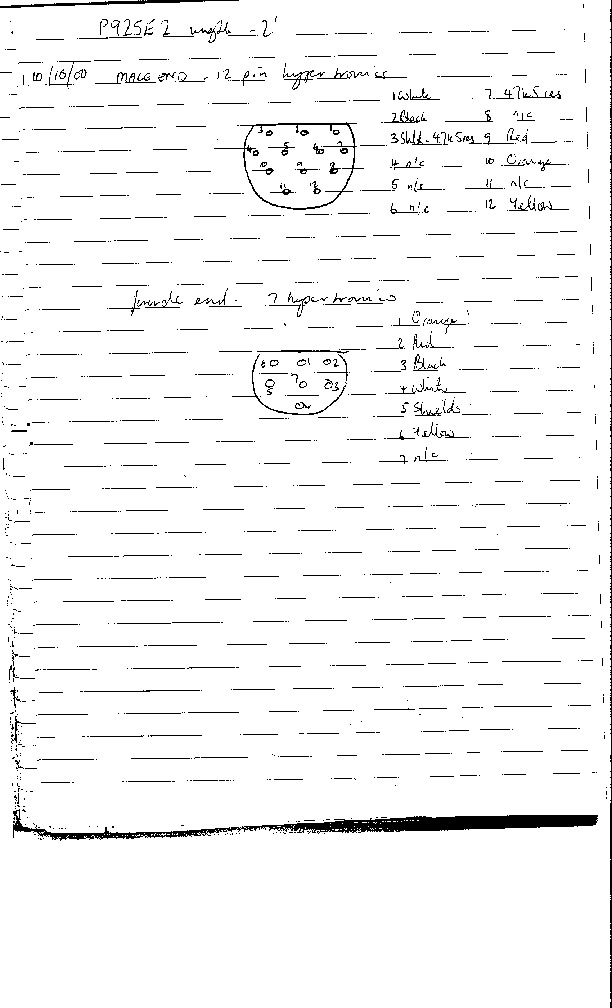 P925E2 length - 2'
10/10/00 MALE END - 12 pin hypertronics
1 White 7 47k5 res
2 Black 8 n/c
3 Shld - 47k5 res 9 Red
4 n/c 10 Orange
5 n/c 11 n/c
6 n/c 12 Yellow
3 2 1
4 5 6 7
10 9 8
11 12
female end - 7 hypertronics
1 Orange
2 Red
3 Black
4 White
5 Shields
6 Yellow
7 n/c
6 1 2
5 7 3
4